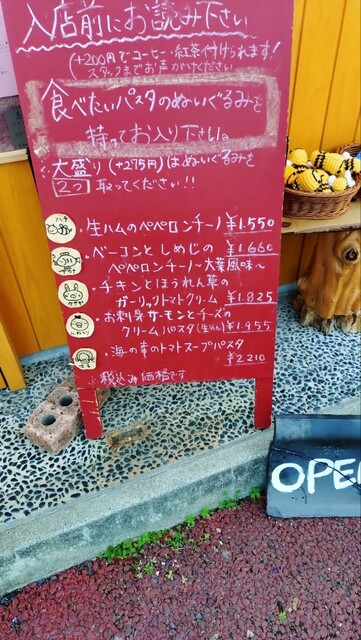 入店前にお読み下さい
(+200円でコーヒー・紅茶付けられます!
スタッフまでお声がけください
食べたいパスタのぬいぐるみを
持ってお入り下さい。
大盛り(+275円)はぬいぐるみを
2つ取ってください!!
生ハムのペペロンチーノ ¥1.550
・ベーコンとしめじの ¥1.660
ペペロンチーノ〜大葉風味〜
・チキンとほうれん草の
ガーリックトマトクリーム ¥1.825
・お刺身サーモンとチーズの
クリームパスタ ¥1.955
・海の幸のトマトスープパスタ
¥2210
※税込み価格です
OPE